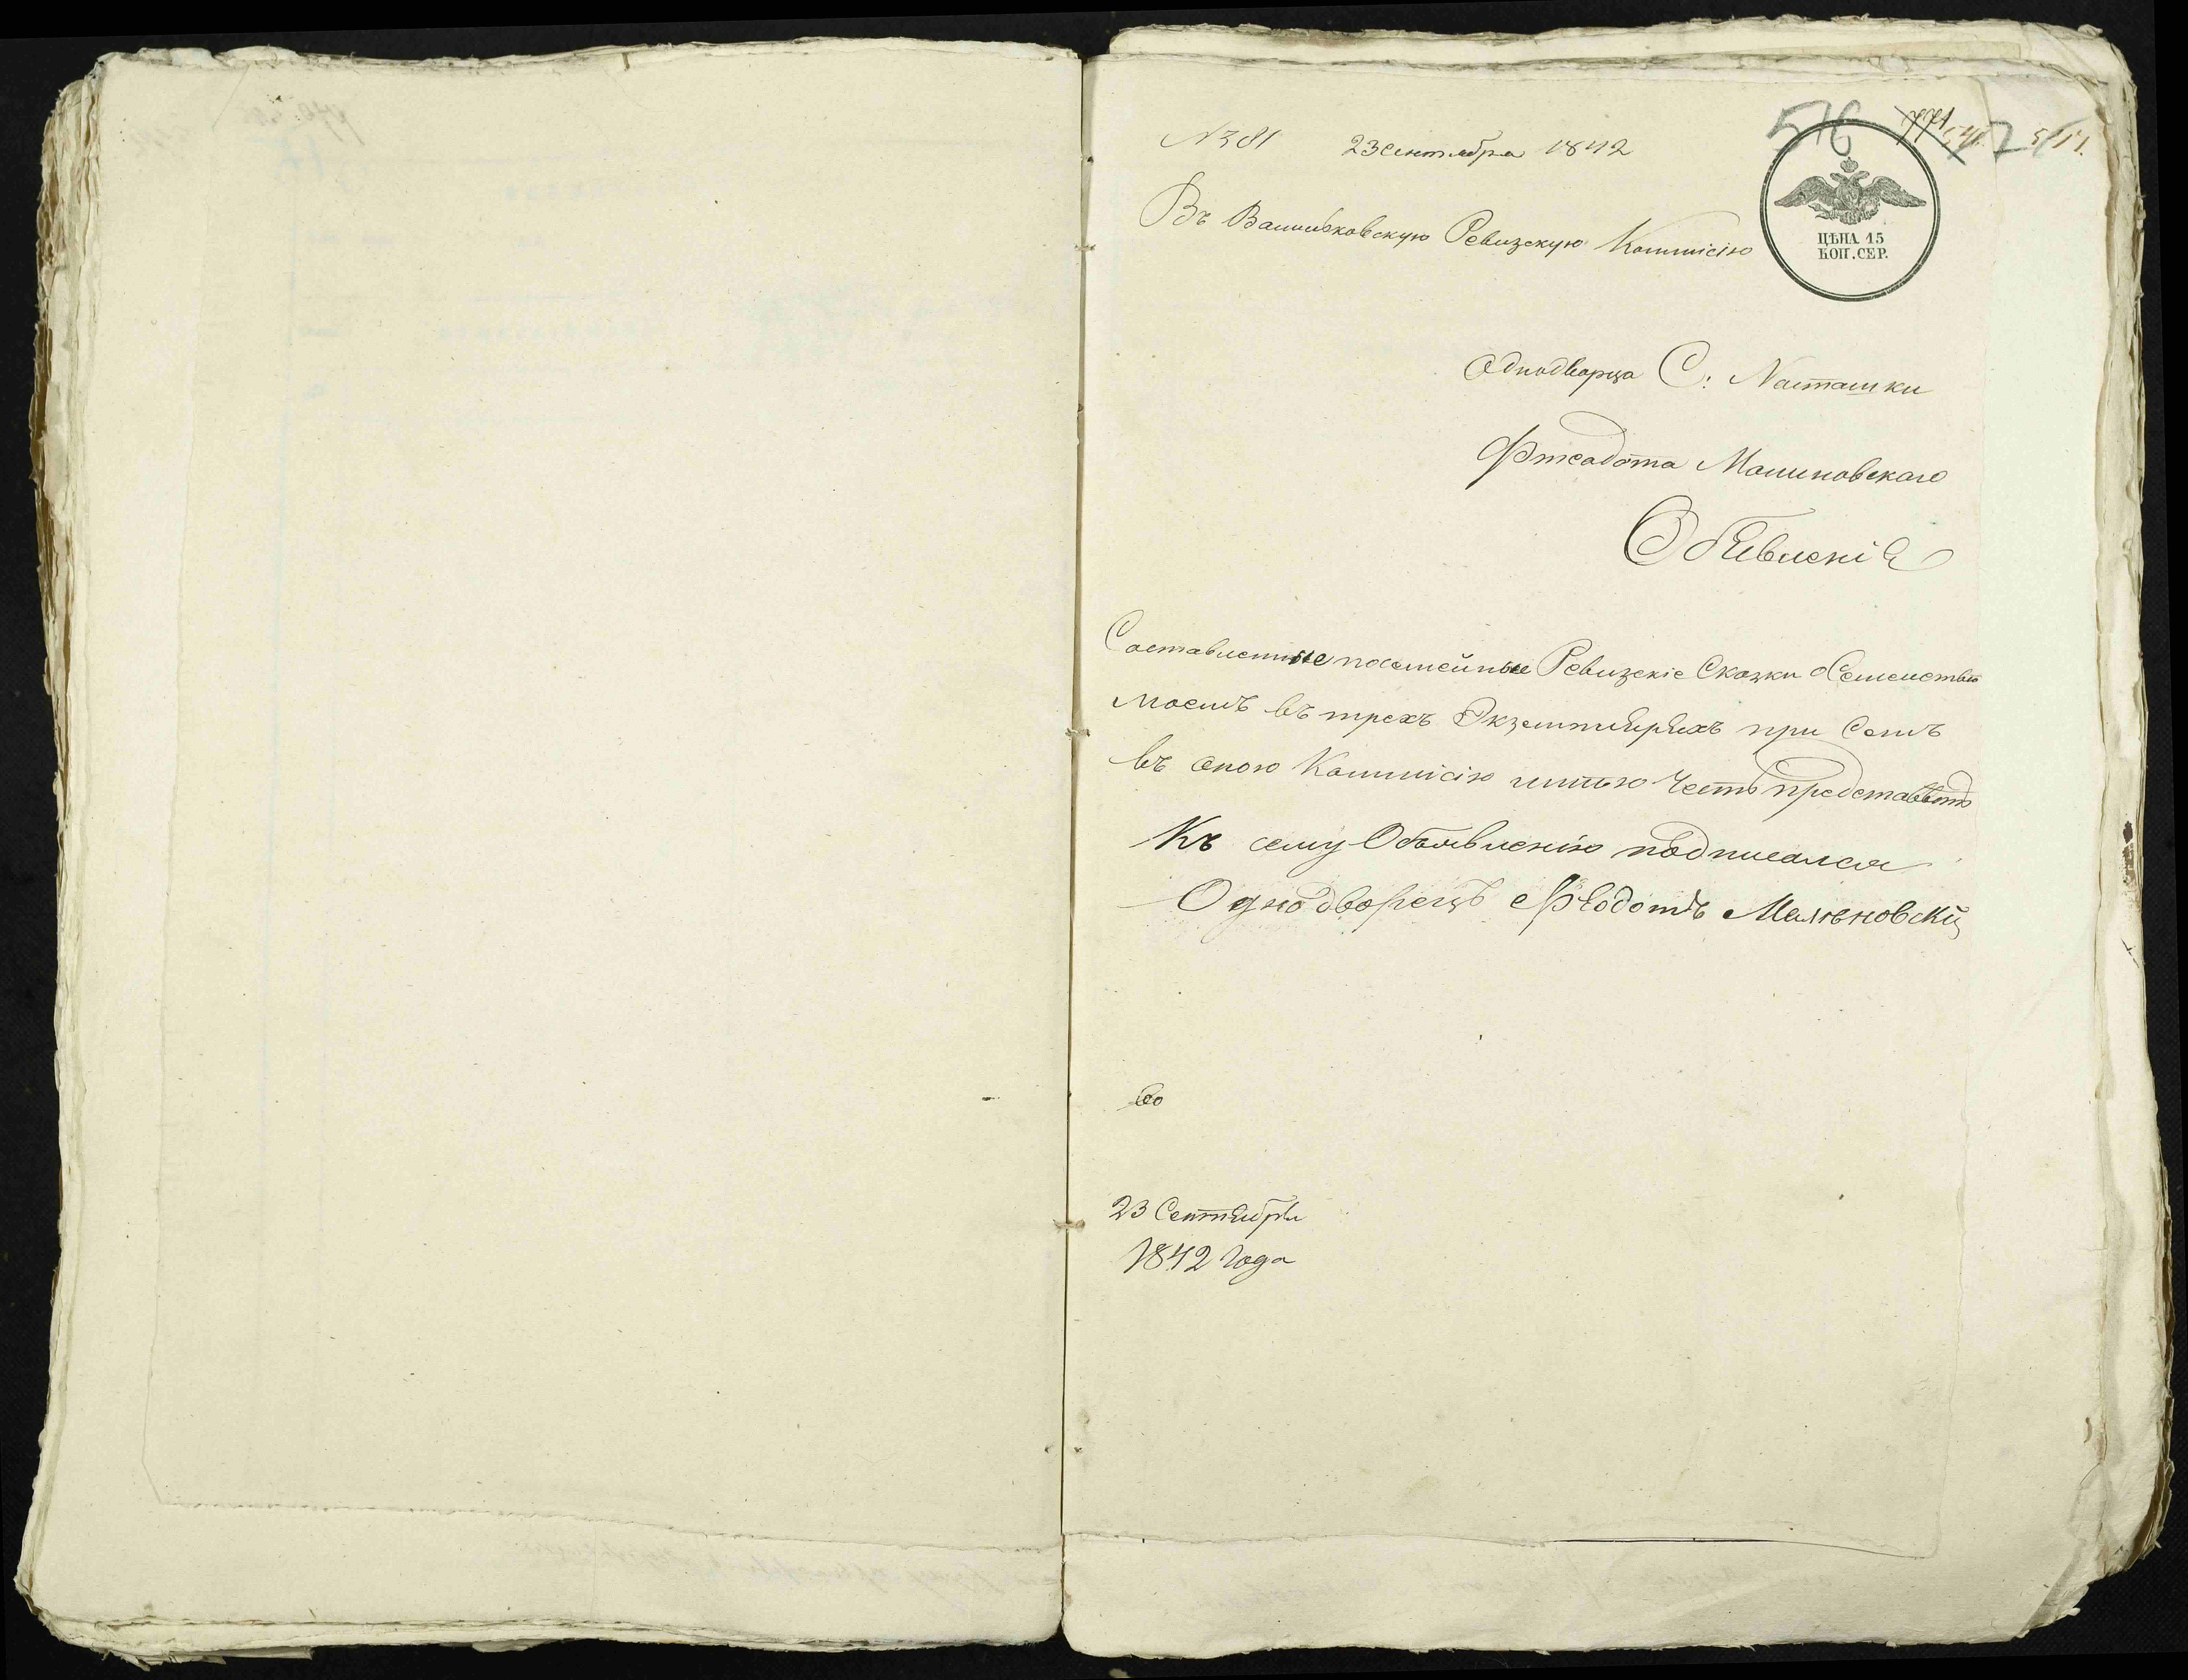 N381 23 Сентября 1842
516
ЦѢНА 15
КОП. СЕР.
Въ Васильковскую Ревизскую Коммисію
Однодворца С: Насташки
Ѳтеодота Малиновскаго
Объявленіе
Составленные посемейные Ревизскіе Сказки о Семействѣ
моемъ въ трехъ Экземплярахъ при Семъ
въ оною Коммисію имѣю Честь представить
Къ сему Объявленію подписался
Однодворецъ Ѳеодотъ Малѣновскій
23 Сентября
1842 Года